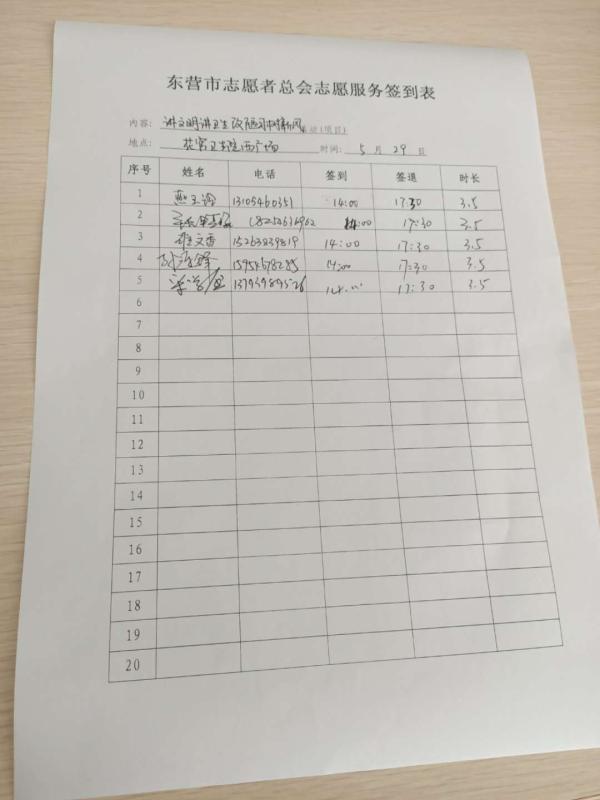 东营市志愿者总会志愿服务签到表
内容: 讲文明讲卫生改陋习树新风 活动(项目)
地点: 花官卫生院西广场 时间: 5 月 29 日
序号 姓名 电话 签到 签退 时长
1 13105460351 14:00 17:30 3.5
2 14:00 17:30 3.5
3 崔文香 15263839819 14:00 17:30 3.5
4 14:00 17:30 3.5
5 14:00 17:30 3.5
6
7
8
9
10
11
12
13
14
15
16
17
18
19
20